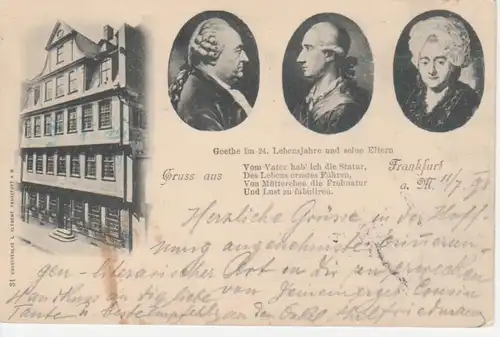 Goethe im 24. Lebensjahre und seine Eltern
Gruss aus
Vom Vater hab' ich die Statur,
Des Lebens ernstes Führen,
Von Mütterchen die Frohnatur
Und Lust zu fabuliren.
Frankfurt
a. M. 11/7. 98
Herzliche Grüsse in der Hoff-
nung angenehmste Erinnerun-
gen - literarischer Art in dir zu erwecken
von
Cousin
Handkuss an die liebe
Tante u.
31 KUNSTVERLAG FRANKFURT A. M.